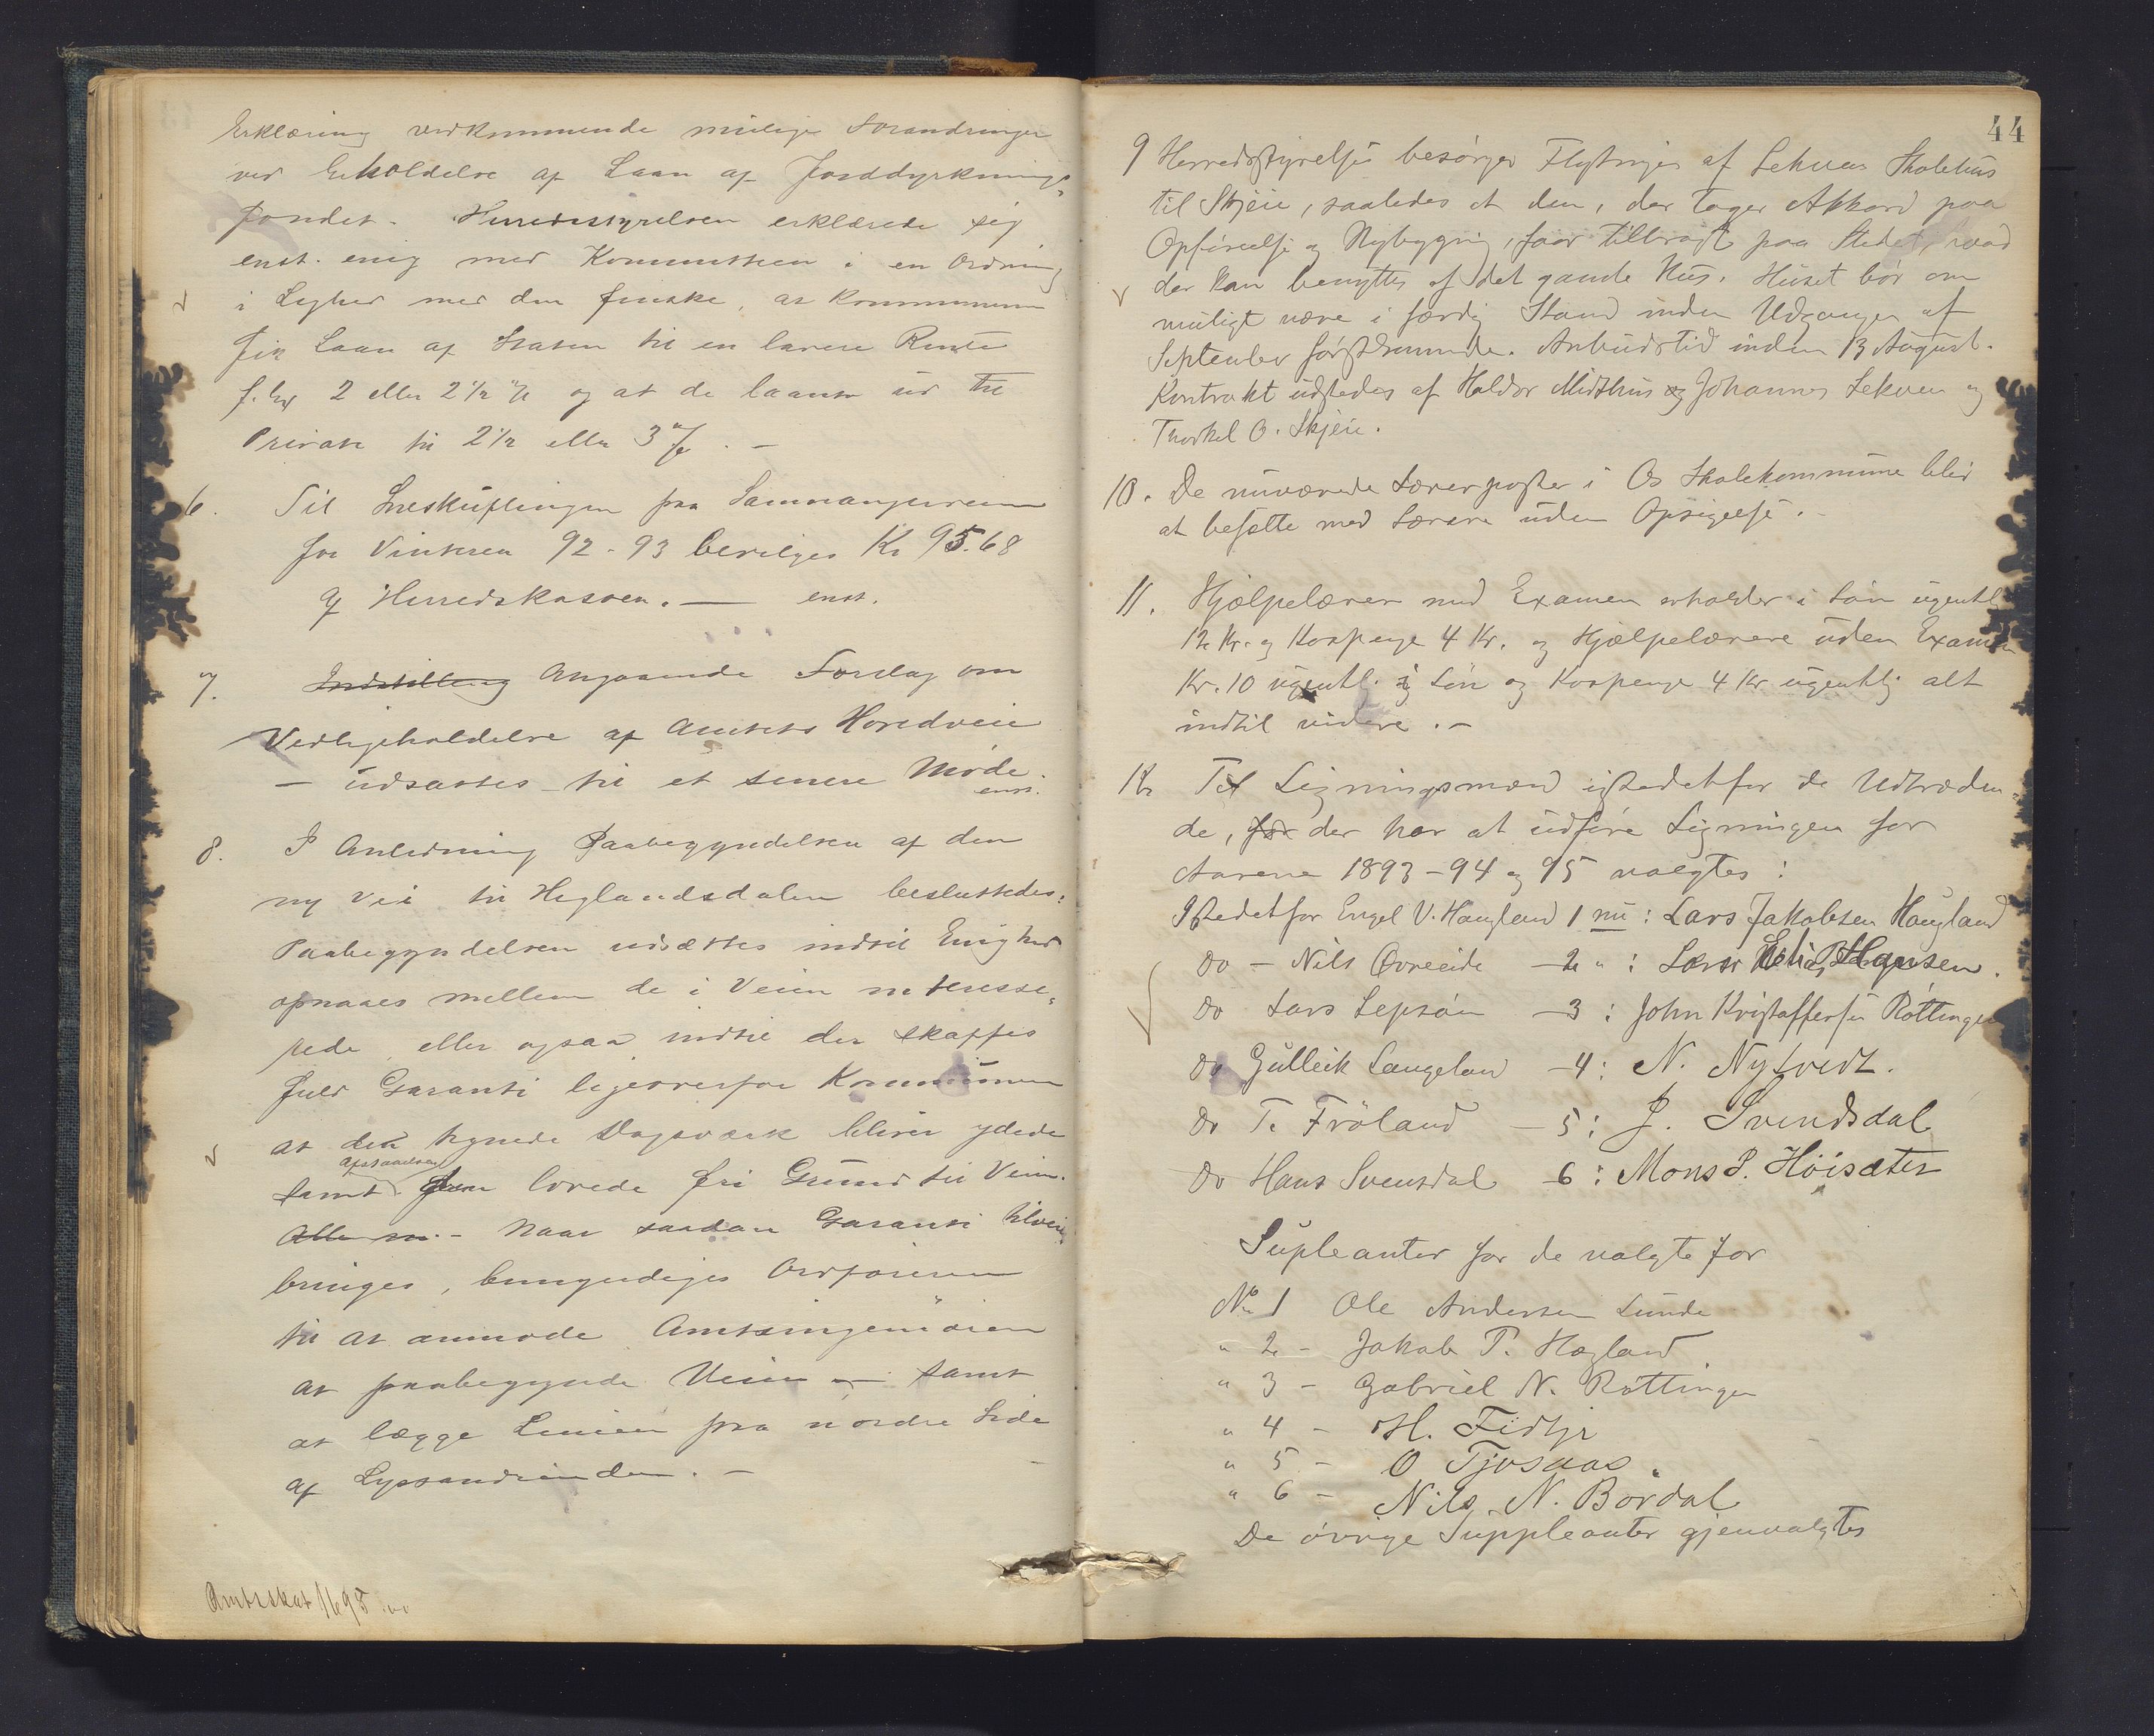 Erklæring vedkommende mulige Forandringer
ved Erholdelse af Laan af Jorddyrknings-
fondet. Herredsstyrelsen erklærede sig
enst. enig med Kommissionen i en Ordning
i Lighed med den finske, at Kommunerne
fik Laan af Staten til en lavere Rente
f. Ex 2 eller 2 1/2 % og at de laante ud til
Private til 2 1/2 eller 3 %. -
6. Til Sneskuflingen paa Samnangerveien
for Vinteren 92-93 bevilges Kr 95.68
af Herredskassen. — enst.
7. Indstilling Angaaende Forslag om
Vedligeholdelse af Amtets Hovedveie
- udsattes til et senere Møde.
enst.
8. I Anledning Paabegyndelsen af den
ny Vei til Heglandsdalen besluttedes:
Paabegyndelsen udsættes indtil Enighed
opnaaes mellem de i Veien interesse-
rede, eller ogsaa indtil der skaffes
fuld Garanti ligeoverfor Kommunen
at de tegnede Dagsværk bliver ydede
Afstaaelsen
samt den lovede fri Grund til Veien.
Naar saadan Garanti tilveie-
bringes, bemyndiges Ordføreren
til at anmode Amtsingeniøren
at paabegynde Veien samt
at lægge Linien paa nordre Side
af Lyssandvinden. -
Amtsskat 1695.00
44
9 Herredsstyrelsen besørger Flytningen af Lekven Skolehus
til Skjeie, saaledes at den, der tager Akkord paa
Opførelse og Nybygning, faar tilbragt paa Stedet, hvad
der kan benyttes af det gamle Hus. Huset bør om
muligt være i færdig Stand inden Udgangen af
September førstkommende. Anbudstid inden 13 August.
Kontrakt udstedes af Haldor Midthus og Johannes Lekven og
Thorkel O. Skjeie.
10. De nuværende Lærerposter i Os Skolekommune blir
at besætte med Lærere uden Opsigelse. -
11. Hjælpelærer med Examen erholder i Løn ugentl
12 Kr. og Kostpenge 4 Kr. og Hjælpelærere uden Examen
Kr. 10 ugentl. i Løn og Kostpenge 4 Kr ugentlig alt
indtil videre. -
12 Til Ligningsmænd istedetfor de Udtræden-
de, for der har at udføre Ligningen for
Aarene 1893-94 og 95 valgtes:
Istedetfor Engel V. Haugland 1 nu: Lars Jakobsen Haugland
Do - Nils Øvreeide - 2 " : Hansen.
Do Lars Lepsøen - 3 : John Kristoffersen Røttingen
Do Gulleik Langeland - 4: N. Nytvedt.
Do T. Frøland - 5: J. Svendsdal
Do Hans Svensdal - 6: Mons P. Høisæter
Supleanter for de valgte for
No 1 Ole Andersen Lunde
" 2 - Jakob T. Hegland
" 3 - Gabriel N. Røttingen
" 4 - H. Tidtjr
" 5 - O Tjosaas.
" 6 - Nils N. Bordal
De øvrige Suppleanter gjenvalgtes